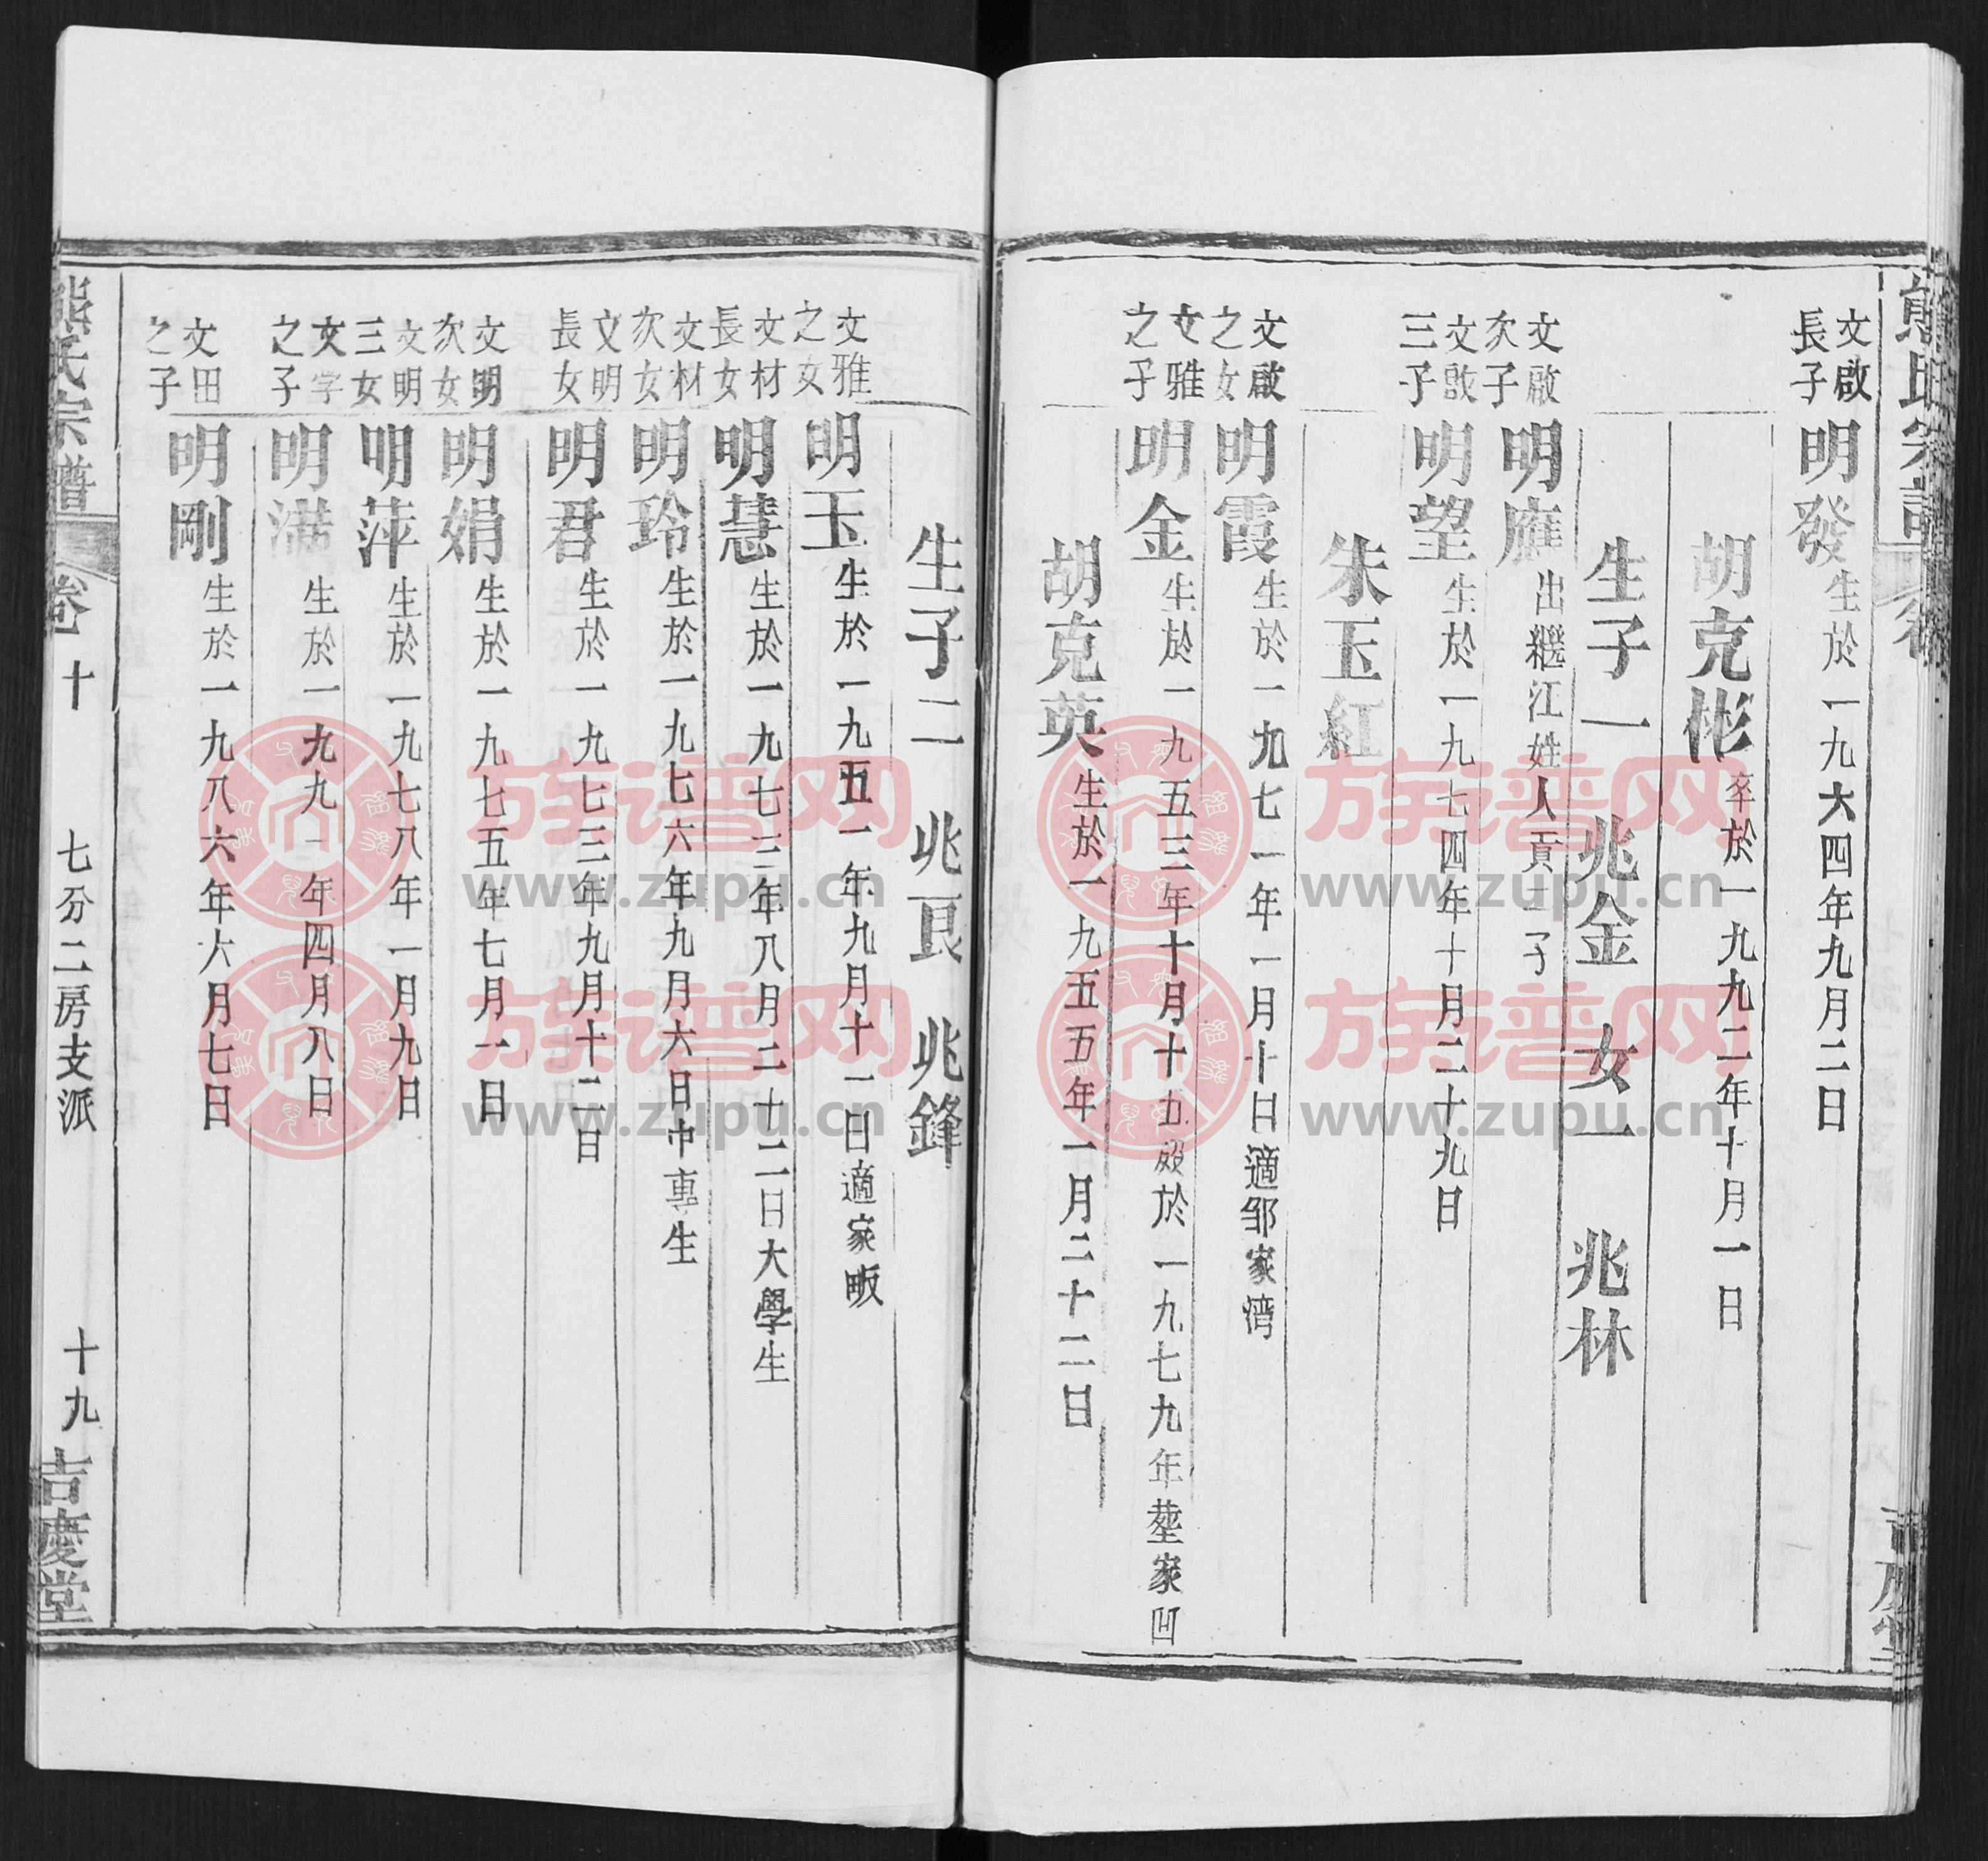 熊氏宗譜
卷
文啟長子
明發生於一九六四年九月二日
胡克彬卒於一九九二年十月一日
生子一 兆金 女一 兆林
文啟次子
明應出繼江姓人貢二子
文啟三子
明望生於一九七四年十月二十九日
朱玉紅
文啟之女
明霞生於一九七一年一月十日適邹家湾
文雅之子
明金生於一九五三年十月十九歿於一九七九年塟家凹
胡克英生於一九五五年一月二十二日
生子二 兆良 兆鋒
文雅之女
明玉生於一九五一年九月十一日適家畈
文材長女
明慧生於一九七三年八月二十二日大學生
文材次女
明玲生於一九七六年九月六日中專生
文明長女
明君生於一九七三年九月十二日
文明次女
明娟生於一九七五年七月一日
文明三女
明萍生於一九七八年一月九日
文学之子
明满生於一九九一年四月八日
文田之子
明剛生於一九八六年六月七日
熊氏宗譜
卷十
七分二房支派
十九
吉慶堂
族谱网
www.zupu.cn
族谱网
www.zupu.cn
族谱网
www.zupu.cn
族谱网
www.zupu.cn